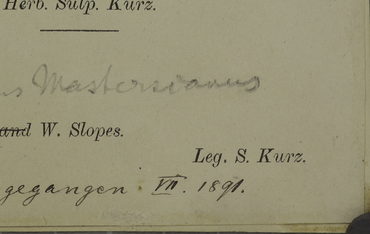 Herb. Sulp. Kurz.
us Mastersianus
and W. Slopes.
Leg. S. Kurz.
gegangen. VII. 1891.